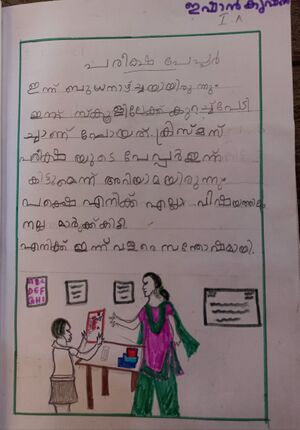 ഇഷാൻകൃഷ്ണ
I. A
പരീക്ഷ പേപ്പർ
ഇന്ന് ബുധനാഴ്ച്ചയായിരുന്നു.
ഇന്ന് സ്കൂളിലേക്ക് കുറച്ച് പേടി
ച്ചാണ് പോയത്. ക്രിസ്മസ്
പരീക്ഷ യുടെ പേപ്പർ ഇന്ന്
കിട്ടുമെന്ന് അറിയാമയിരുന്നു.
പക്ഷെ എനിക്ക് എല്ലാ വിഷയത്തിലും
നല്ല മാർക്ക് കിട്ടി.
എനിക്ക് ഇന്ന് വളരെ സന്തോഷമായി.
ABC
DEF
GHI